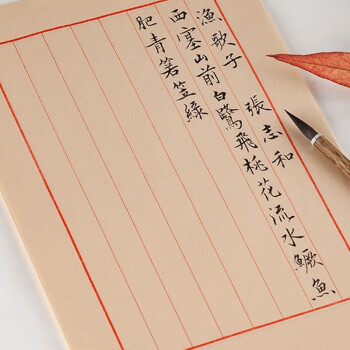 漁歌子 張志和
西塞山前白鷺飛桃花流水鱖魚
肥青箬笠綠